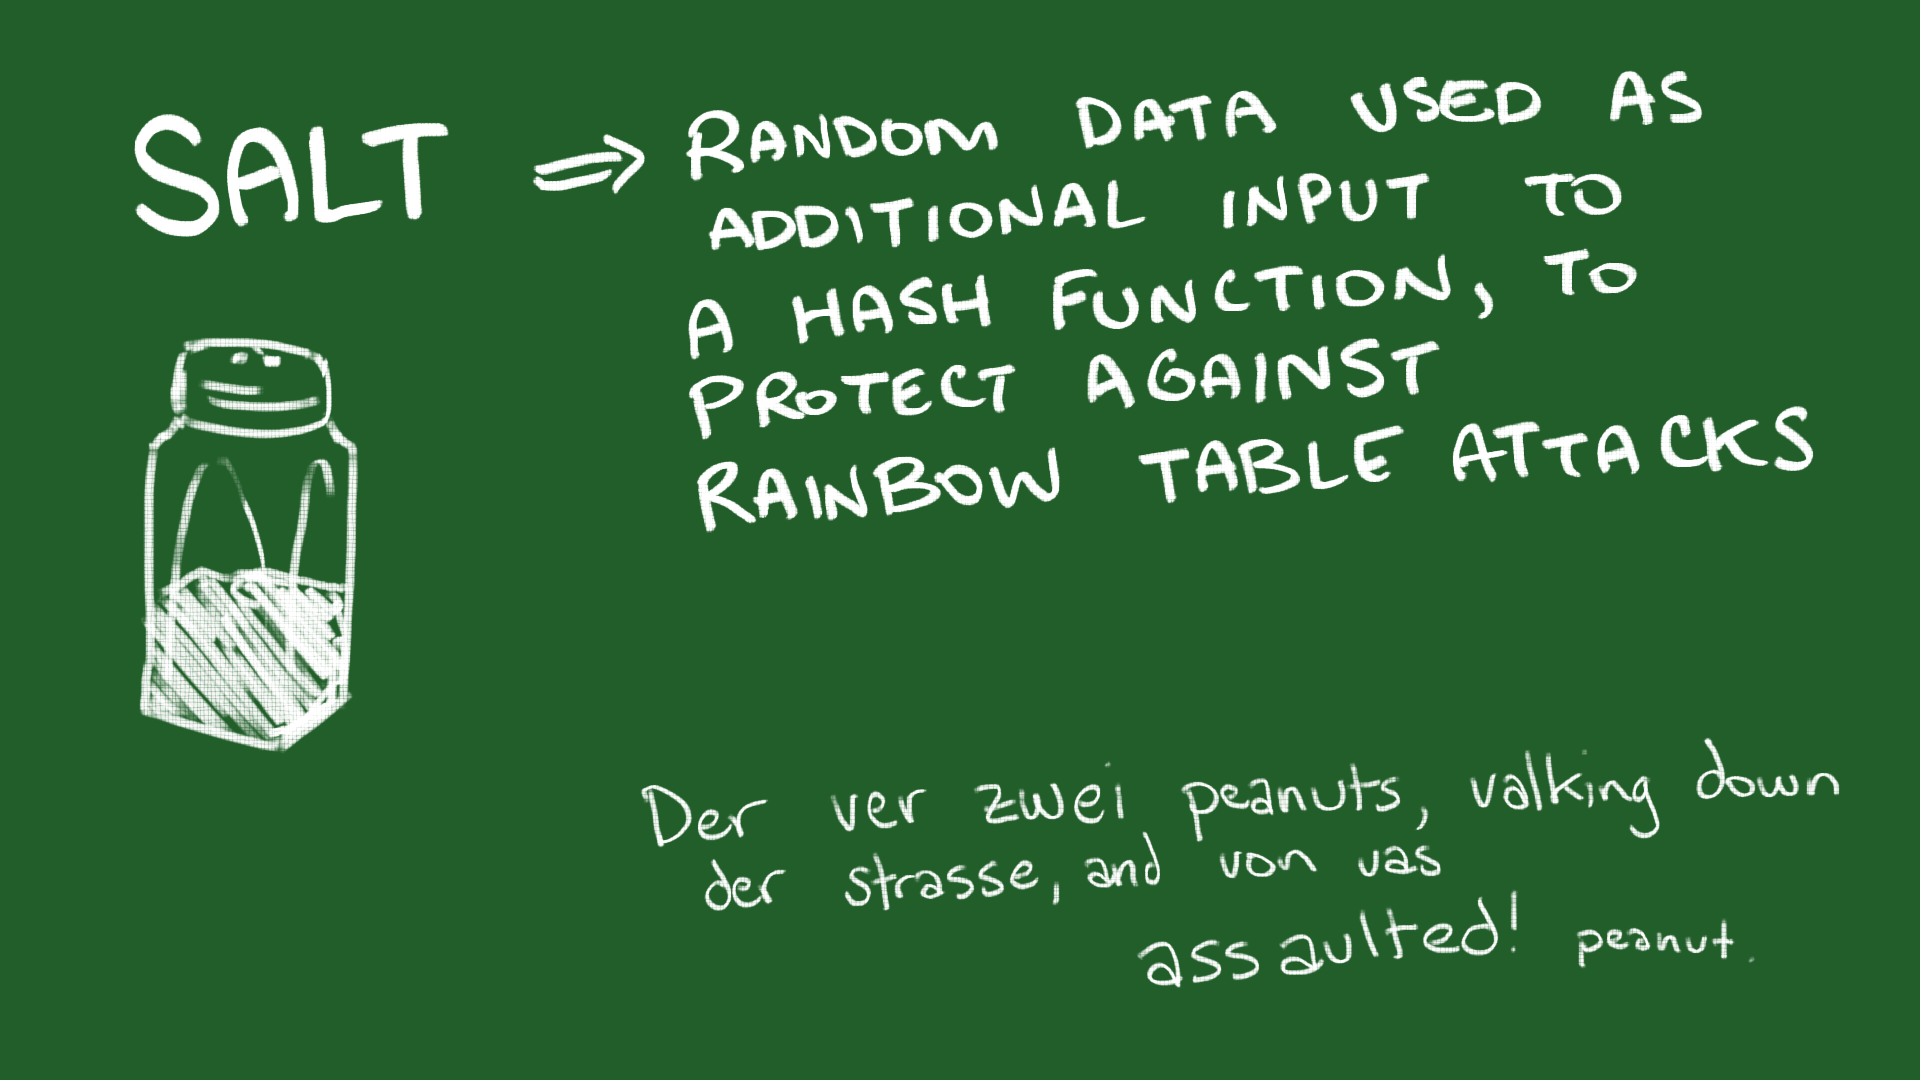 SALT ⇒ RANDOM DATA USED AS
ADDITIONAL INPUT TO
A HASH FUNCTION, TO
PROTECT AGAINST
RAINBOW TABLE ATTACKS
Der ver zwei peanuts, valking down
der strasse, and von vas
assaulted! peanut.